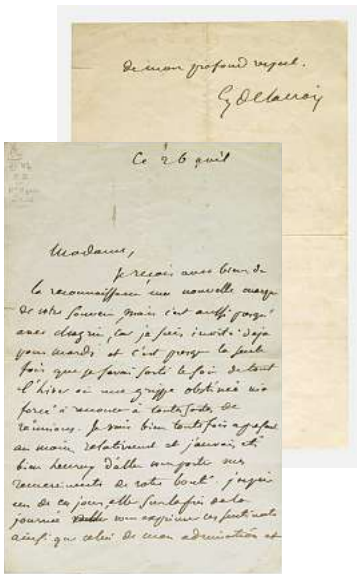 Ce 26 avril
Madame,
Je reçois avec bien de
la reconnaissance une nouvelle marque
de votre souvenir mais c'est aussi presque
avec chagrin, car je suis invité déjà
pour mardi et c'est presque la seule
fois que je serai sorti le soir de tout
l'hiver où une grippe obstinée m'a
forcé à renoncer à toute sorte de
réunions. Je suis bien toutefois à présent
au moins relativement et j'aurais été
bien heureux d'aller vous porter mes
remerciements de votre bonté. J'espère
un de ces jours, sur la fin de la
journée vous exprimer ces sentiments
ainsi que celui de mon admiration et
de mon profond respect.
Eg Delacroix